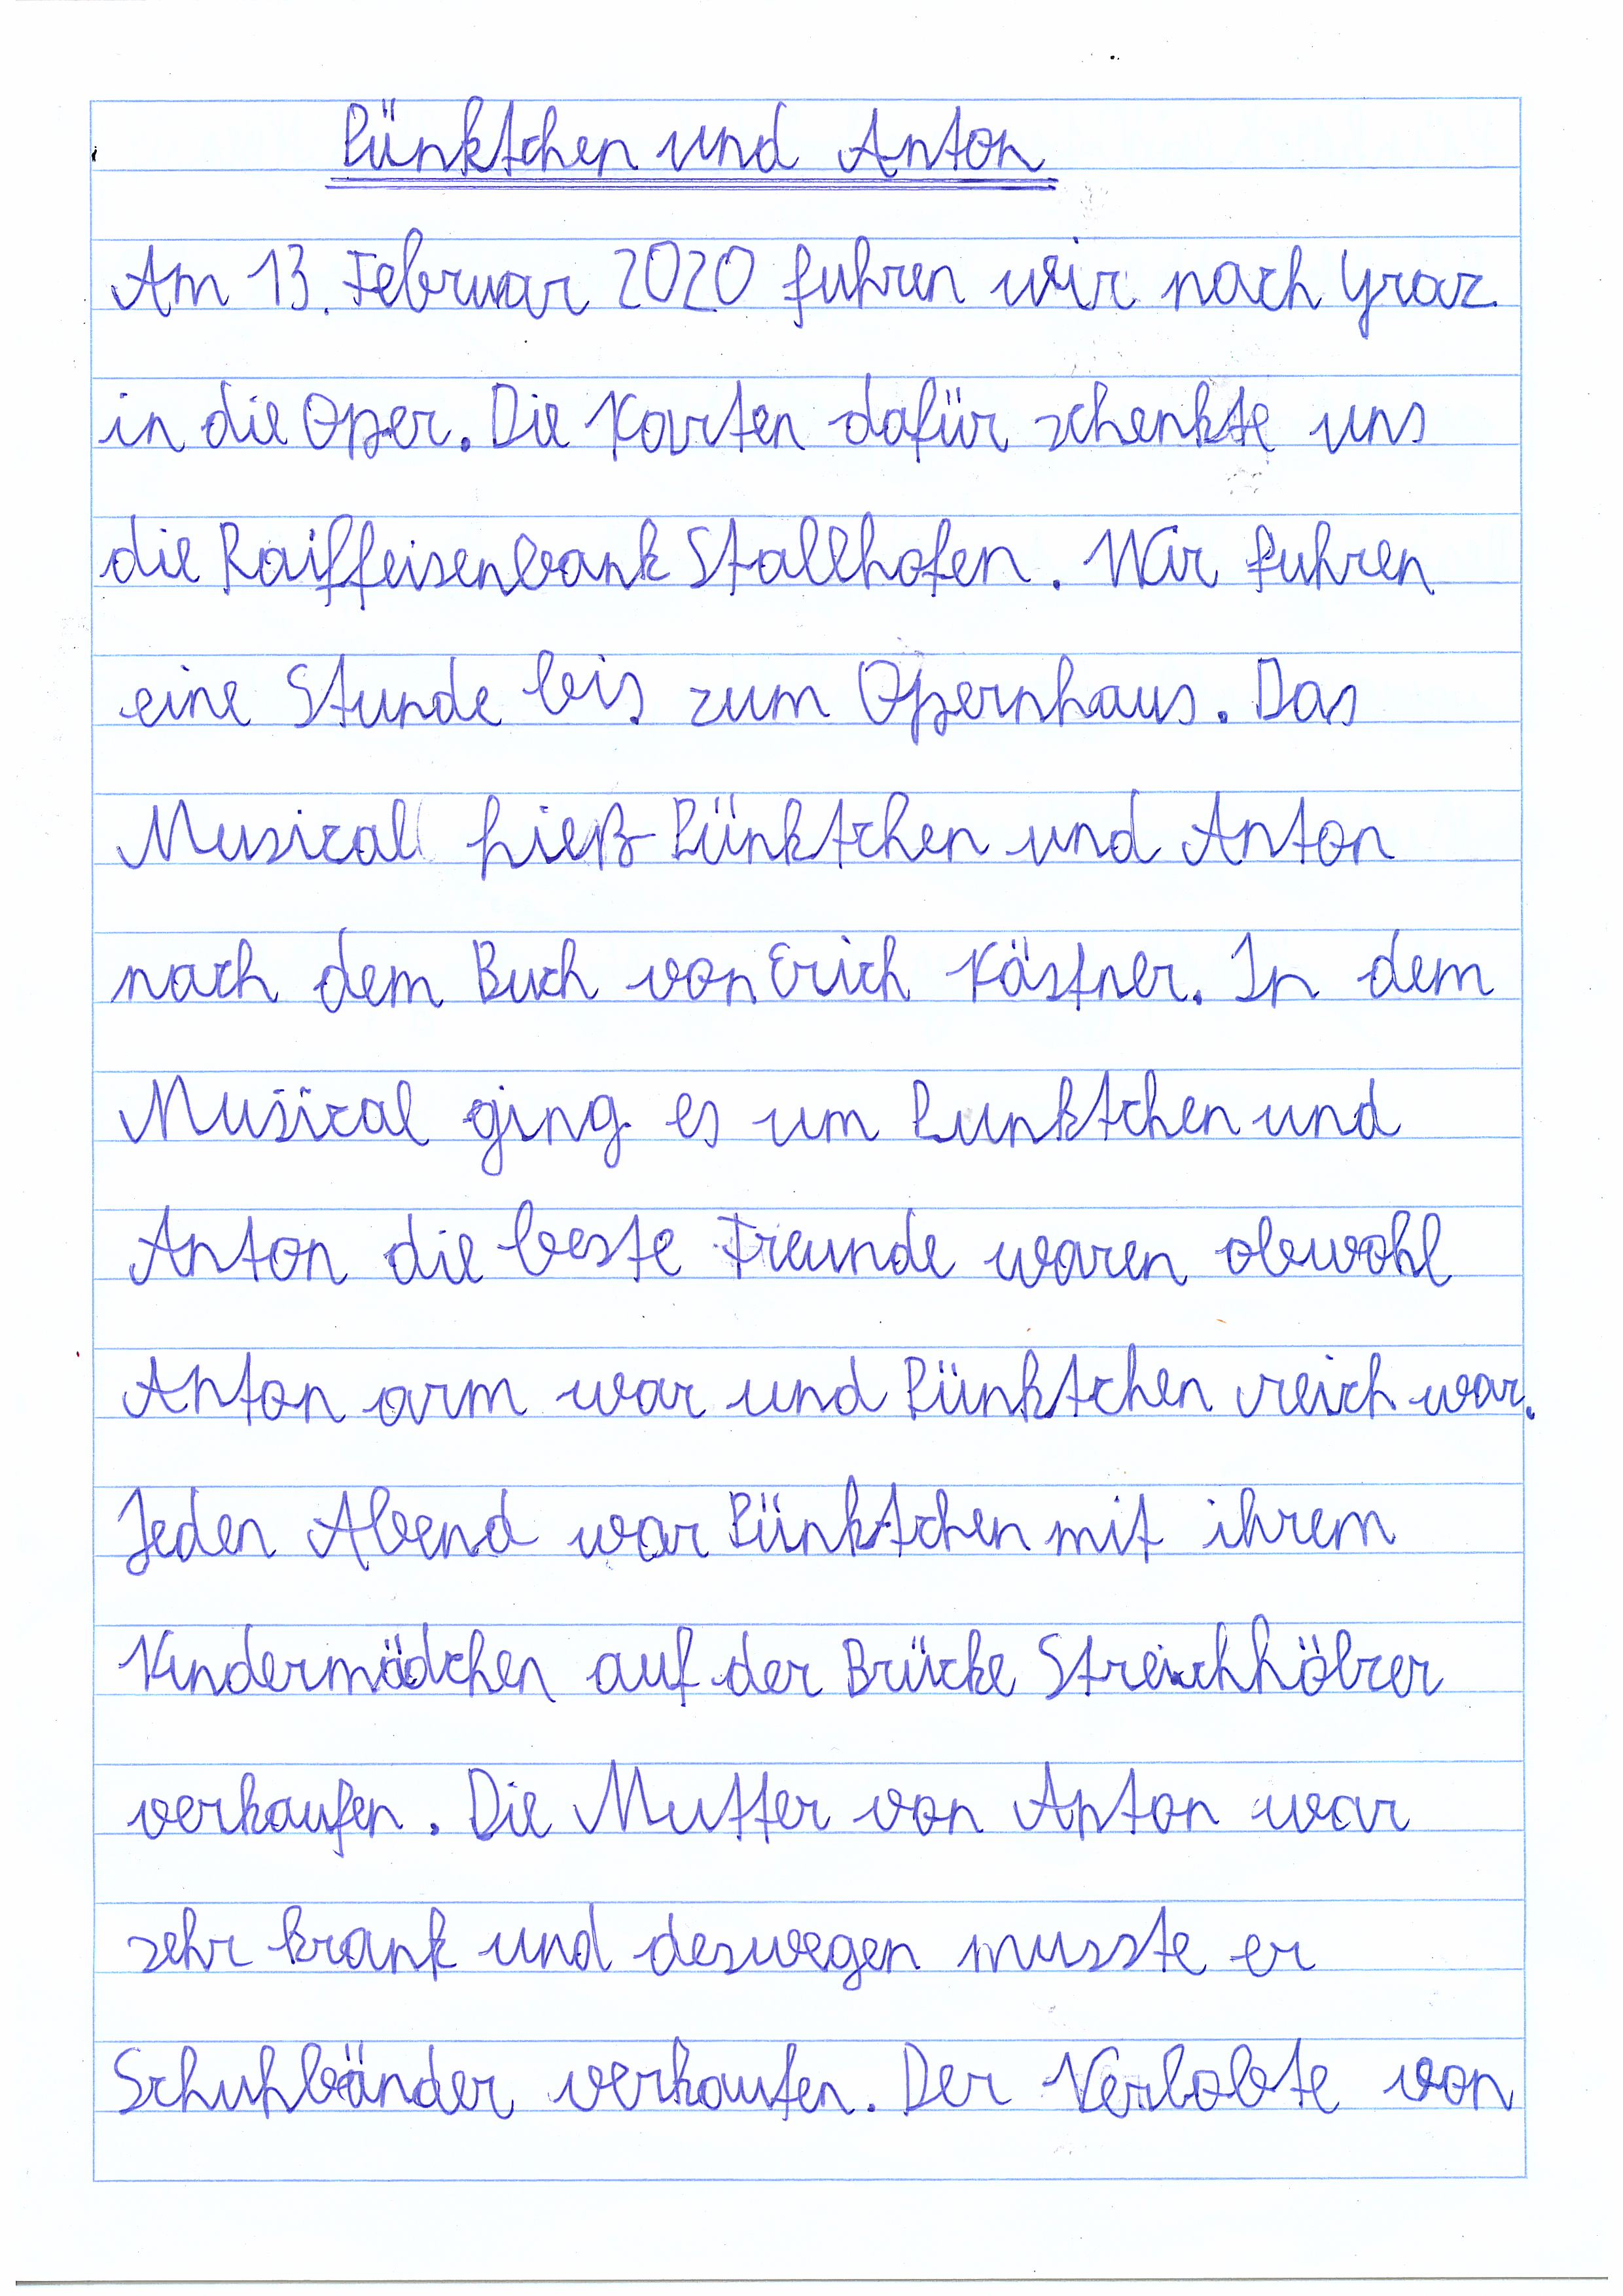 Pünktchen und Anton
Am 13. Februar 2020 fuhren wir nach Graz
in die Oper. Die Karten dafür schenkte uns
die Raiffeisenbank Stallhofen. Wir fuhren
eine Stunde bis zum Opernhaus. Das
Musical hieß Pünktchen und Anton
nach dem Buch von Erich Kästner. In dem
Musical ging es um Punktchen und
Anton die beste Freunde waren obwohl
Anton arm war und Pünktchen reich war.
Jeden Abend war Pünktchen mit ihrem
Kindermädchen auf der Brücke Streichhölzer
verkaufen. Die Mutter von Anton war
sehr krank und deswegen musste er
Schuhbänder verkaufen. Der Verlobte von